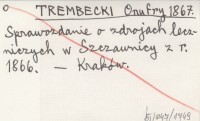 TREMBECKI Onufry 1867.
Sprawozdanie o zdrojach lecz-
niczych w Szczawnicy z r.
1866. — Kraków.